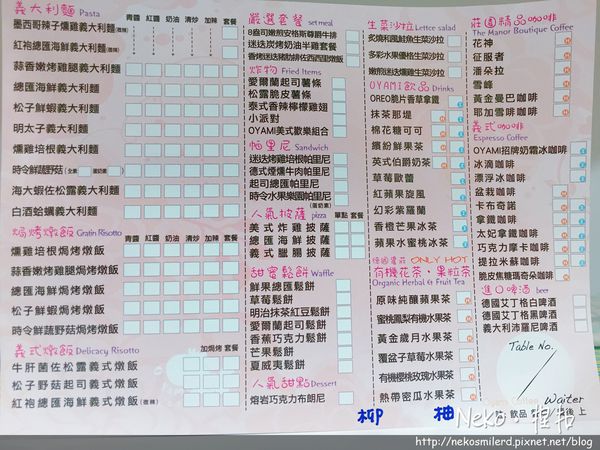 義大利麵 Pasta
青醬 紅醬 奶油 清炒 加辣 套餐
墨西哥辣子燻雞義大利麵(微辣)
紅袍總匯海鮮義大利麵(微辣)
蒜香嫩烤雞腿義大利麵
總匯海鮮義大利麵
松子鮮蝦義大利麵
明太子義大利麵
燻雞培根義大利麵
時令鮮蔬野菇(全素 蛋奶素)
海大蝦佐松露義大利麵
白酒蛤蠣義大利麵
焗烤燉飯 Gratin Risotto
青醬 紅醬 奶油 加辣 套餐
燻雞培根焗烤燉飯
蒜香嫩烤雞腿焗烤燉飯
總匯海鮮焗烤燉飯
松子鮮蝦焗烤燉飯
時令鮮蔬野菇焗烤燉飯
義式燉飯 Delicacy Risotto
加焗烤 套餐
牛肝菌佐松露義式燉飯
松子野菇起司義式燉飯
紅袍總匯海鮮義式燉飯(微辣)
嚴選套餐 set meal
8盎司嫩煎安格斯尊爵牛排
迷迭炭烤奶油半雞套餐
香烤迷迭豬肋排佐西西里燉飯
炸物 Fried Items
愛爾蘭起司薯條
松露脆皮薯條
泰式香辣檸檬雞翅
小派對
OYAMI美式歡樂組合
帕里尼 Sandwich
迷迭烤雞培根帕里尼
德式煙燻牛肉帕里尼
起司總匯帕里尼
時令水果帕里尼
(蛋奶素)
人氣披薩 pizza 單點 套餐
美式炸雞披薩
總匯海鮮披薩
義式臘腸披薩
甜蜜鬆餅 Waffle
鮮果總匯鬆餅
草莓鬆餅
明治抹茶紅豆鬆餅
愛爾蘭起司鬆餅
香蕉巧克力鬆餅
芒果鬆餅
夏威夷鬆餅
人氣甜點 Dessert
熔岩巧克力布朗尼
生菜沙拉 Lettce salad
炙燒和風鮭魚生菜沙拉
多彩水果優格生菜沙拉
嫩煎迷迭燻雞生菜沙拉
OYAMI飲品 Drinks
OREO脆片香草拿鐵
抹茶那堤
棉花糖可可
繽紛鮮果茶
英式伯爵奶茶
草莓歐蕾
紅蘋果旋風
幻彩紫羅蘭
香橙芒果冰茶
蘋果水蜜桃冰茶
德國農莊 ONLY HOT
有機花茶・果粒茶
Organic Herbal & Fruit Tea
原味純釀蘋果茶
蜜桃鳳梨有機水果茶
黃金歲月水果茶
覆盆子草莓水果茶
有機櫻桃玫瑰水果茶
熱帶密瓜水果茶
莊園精品咖啡
The Manor Boutique Coffee
花神
征服者
潘朵拉
雪峰
黃金曼巴咖啡
耶加雪菲咖啡
義式咖啡
Espresso Coffee
OYAMI招牌奶霜冰咖啡
冰滴咖啡
漂浮冰咖啡
盆栽咖啡
卡布奇諾
拿鐵咖啡
太妃拿鐵咖啡
巧克力摩卡咖啡
提拉米蘇咖啡
脆皮焦糖瑪奇朵咖啡
進口啤酒 beer
德國艾丁格白啤酒
德國艾丁格黑啤酒
義大利沛羅尼啤酒
Table No.
Waiter
柳 柚
Neko。狸布
http://nekosmilerd.pixnet.net/blog